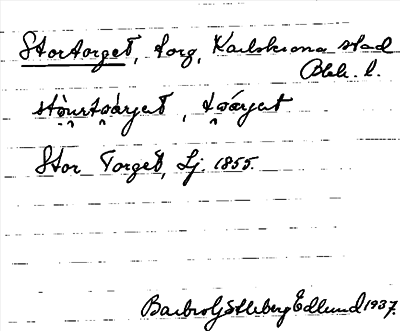 Stortorget, torg, Karlskrona stad
Blek. l.
stòurtoárjet, toárjet
Stor Torget, Lj. 1855.
Edlund 1937.